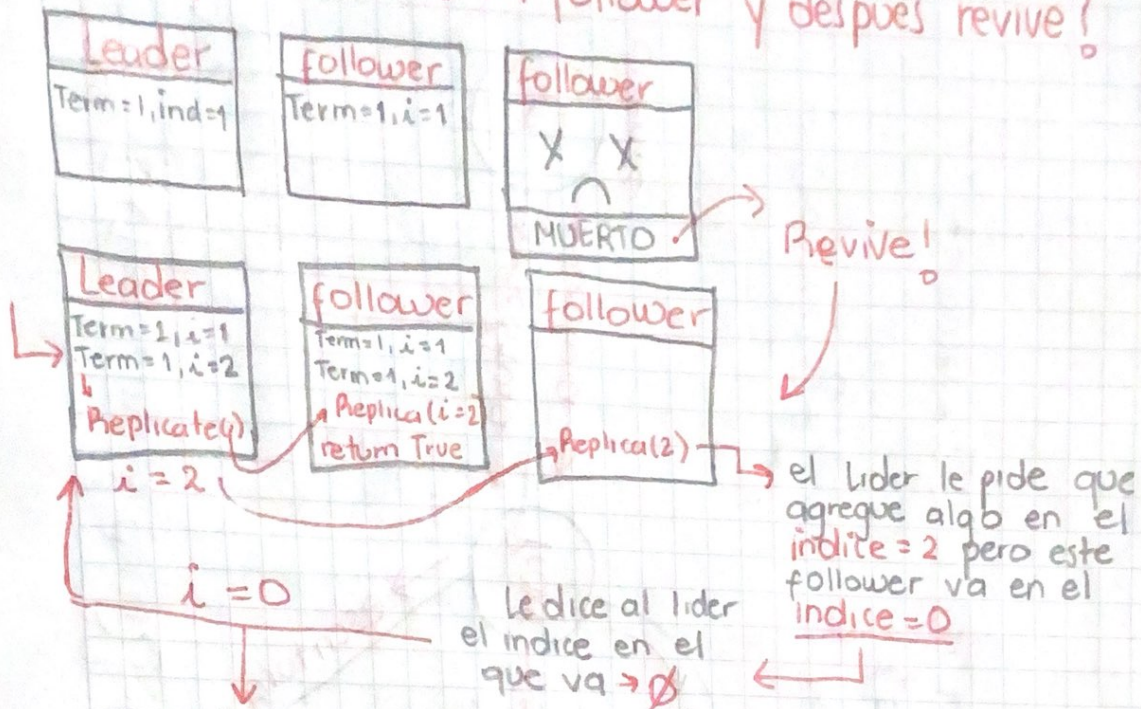 follower y después revive!
Leader
Term=1, ind=1
follower
Term=1, i=1
follower
X X
MUERTO
Revive!
Leader
Term=1, i=1
Term=1, i=2
Replicate()
i = 2
follower
Term=1, i=1
Term=1, i=2
Replica(i=2)
return True
follower
Replica(2)
el lider le pide que
agregue algo en el
indice = 2 pero este
follower va en el
indice = 0
i = 0
Le dice al lider
el indice en el
que va → Ø